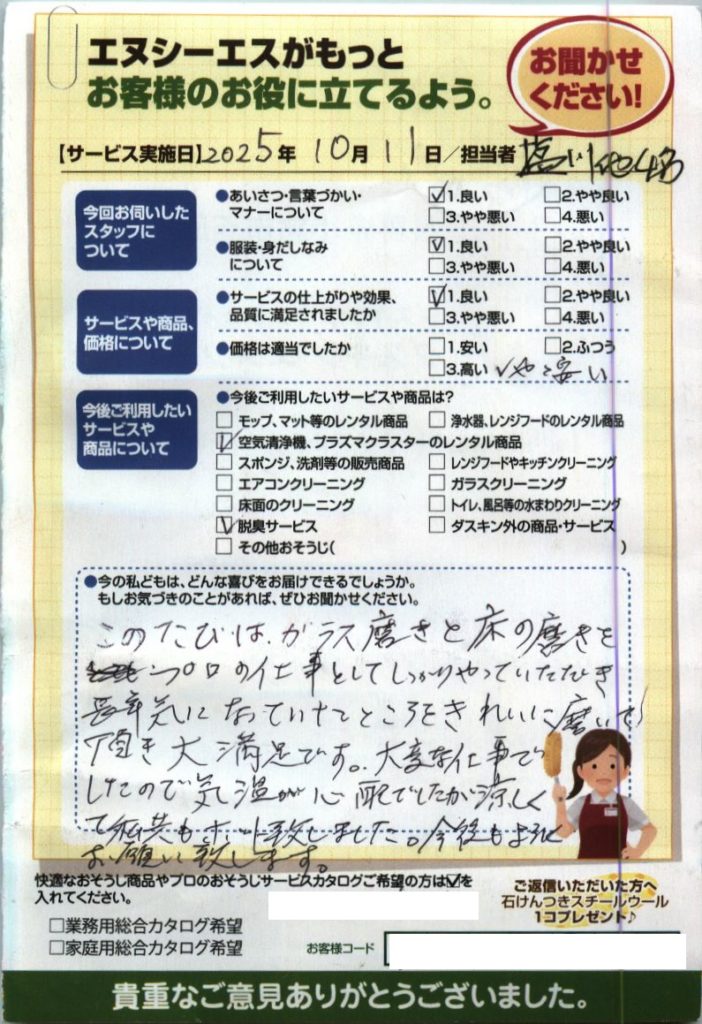 エヌシーエスがもっと
お客様のお役に立てるよう。
お聞かせ
ください!
【サービス実施日】2025年 10月 11日/担当者
今回お伺いした
スタッフに
ついて
●あいさつ・言葉づかい・
マナーについて
☑1.良い □2.やや良い
□3.やや悪い □4.悪い
●服装・身だしなみ
について
☑1.良い □2.やや良い
□3.やや悪い □4.悪い
サービスや商品、
価格について
●サービスの仕上がりや効果、
品質に満足されましたか
☑1.良い □2.やや良い
□3.やや悪い □4.悪い
●価格は適当でしたか
□1.安い □2.ふつう
□3.高い ✓やゝ安い
今後ご利用したい
サービスや
商品について
●今後ご利用したいサービスや商品は?
□モップ、マット等のレンタル商品 □浄水器、レンジフードのレンタル商品
☑空気清浄機、プラズマクラスターのレンタル商品
□スポンジ、洗剤等の販売商品 □レンジフードやキッチンクリーニング
□エアコンクリーニング □ガラスクリーニング
□床面のクリーニング □トイレ、風呂等の水まわりクリーニング
☑脱臭サービス □ダスキン外の商品・サービス
□その他おそうじ( )
●今の私どもは、どんな喜びをお届けできるでしょうか。
もしお気づきのことがあれば、ぜひお聞かせください。
このたびは、ガラス磨きと床の磨きを
プロの仕事としてしっかりやっていただき
長年気になっていたところをきれいに磨いて
頂き大満足です。大変な仕事で
したので気温が心配でしたが涼しく
て私共もホッと致しました。今後もよろしく
お願い致します。
快適なおそうじ商品やプロのおそうじサービスカタログご希望の方は☑を
入れてください。
□業務用総合カタログ希望
□家庭用総合カタログ希望
お客様コード
ご返信いただいた方へ
石けんつきスチールウール
1コプレゼント♪
貴重なご意見ありがとうございました。